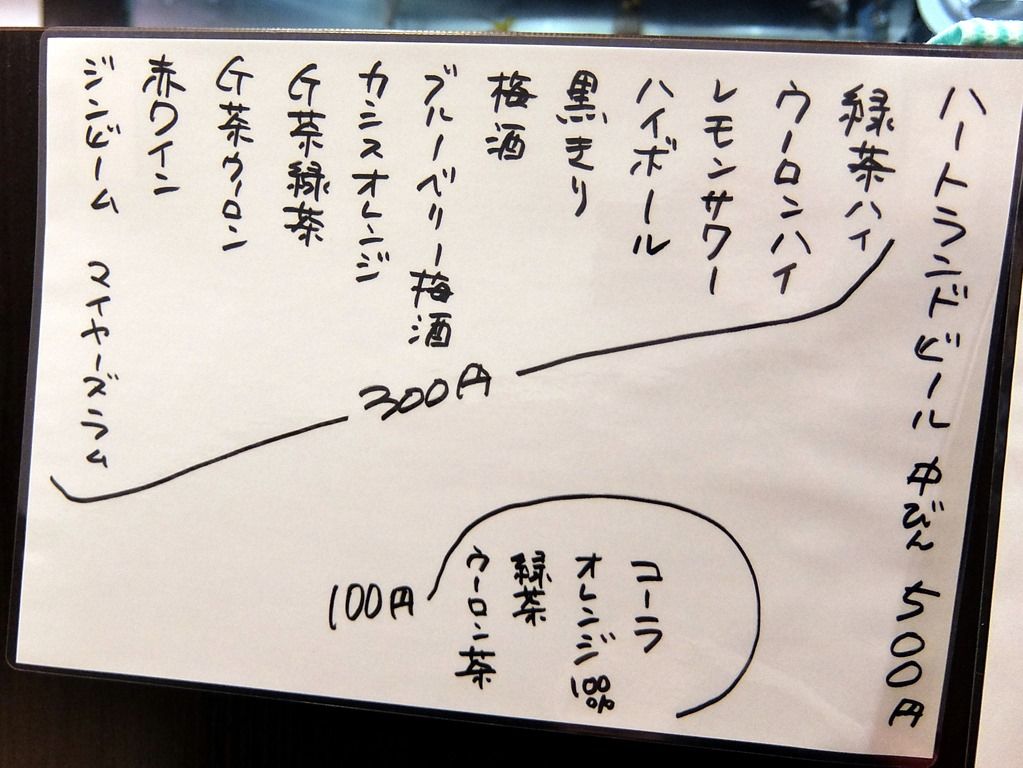 ハートランドビール 中びん 500円
緑茶ハイ
ウーロンハイ
レモンサワー
ハイボール
黒きり
梅酒
ブルーベリー梅酒
カシスオレンジ
G茶緑茶
G茶ウーロン
赤ワイン
ジンビーム マイヤーズラム
300円
コーラ
オレンジ100%
緑茶
ウーロン茶
100円